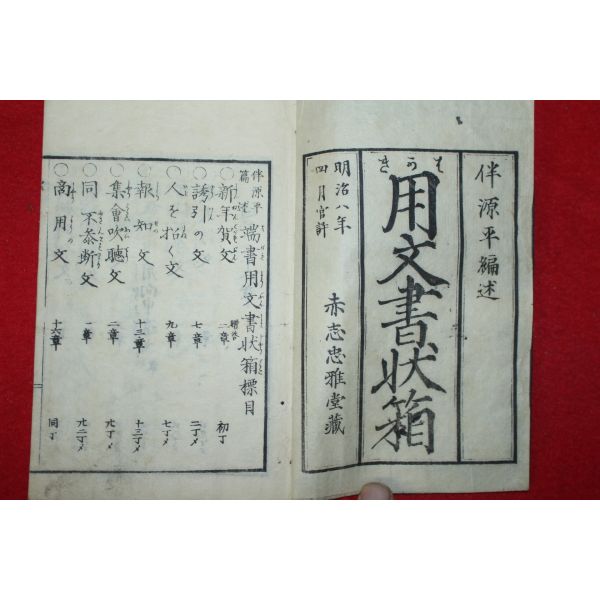 伴源平編述
はがき
用文書状箱
明治八年
四月官許
赤志忠雅堂藏
伴源平
篇述
端書用文書状箱標目
○新年賀文 二章 初丁
○誘引の文 七章 二丁メ
○人を招く文 九章 七丁メ
○報知文 十三章 十三丁メ
○集會吹聴文 二章
○同不参断文 一章
○商用文 十六章 同丁